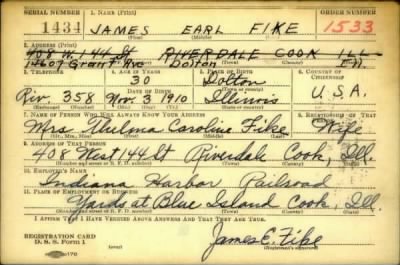 SERIAL NUMBER 1. NAME (Print) ORDER NUMBER
1434 JAMES EARL FIKE 1533
(First) (Middle) (Last)
2. ADDRESS (Print)
408 W. 144 St RIVERDALE COOK ILL
Grant Ave Dolton
(Number and street or R. F. D. number) (Town) (County) (State)
3. TELEPHONE 4. AGE IN YEARS 5. PLACE OF BIRTH 6. COUNTRY OF CITIZENSHIP
30 Dolton
Riv. 358 DATE OF BIRTH (Town or county)
Nov. 3 1910 Illinois U.S.A.
(Exchange) (Number) (Mo.) (Day) (Yr.) (State or country)
7. NAME OF PERSON WHO WILL ALWAYS KNOW YOUR ADDRESS 8. RELATIONSHIP OF THAT PERSON
Mrs. Thelma Caroline Fike Wife
(Mr., Mrs., Miss) (First) (Middle) (Last)
9. ADDRESS OF THAT PERSON
408 West 144 St Riverdale Cook, Ill.
(Number and street or R. F. D. number) (Town) (County) (State)
10. EMPLOYER'S NAME
Indiana Harbor Railroad
11. PLACE OF EMPLOYMENT OR BUSINESS
Yards at Blue Island Cook, Ill.
(Number and street or R. F. D. number) (Town) (County) (State)
I AFFIRM THAT I HAVE VERIFIED ABOVE ANSWERS AND THAT THEY ARE TRUE.
REGISTRATION CARD
D. S. S. Form 1 James E. Fike
(Registrant's signature)